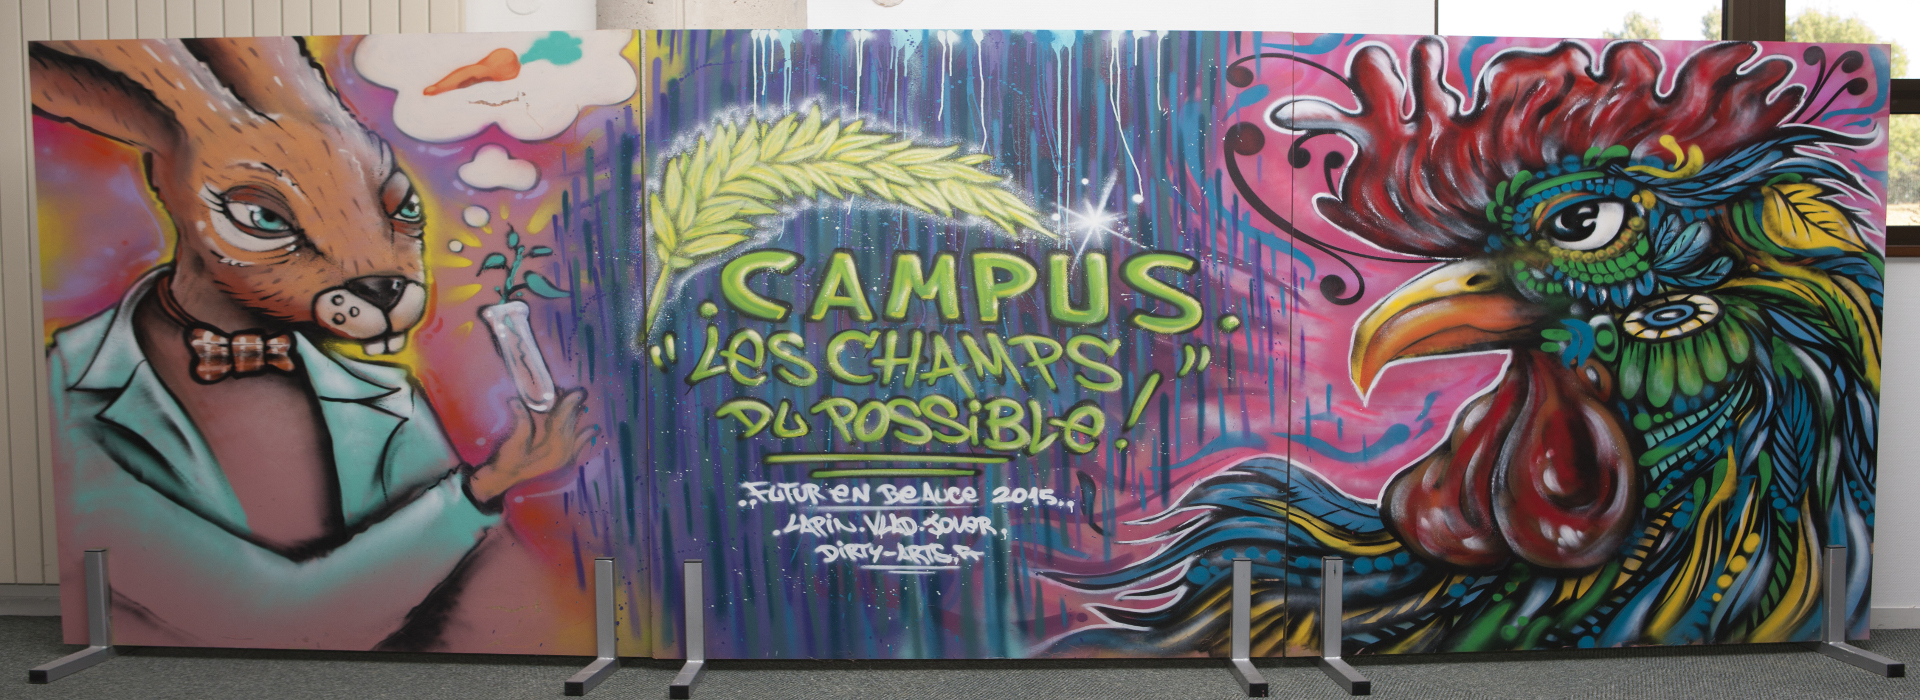 .CAMPUS.
"LES CHAMPS"
DU POSSiBLE!
.FUTUR EN BEAUCE 2015..
.LAPiN.VLAD.JOUER.
DiRTY-ARTS.Fr